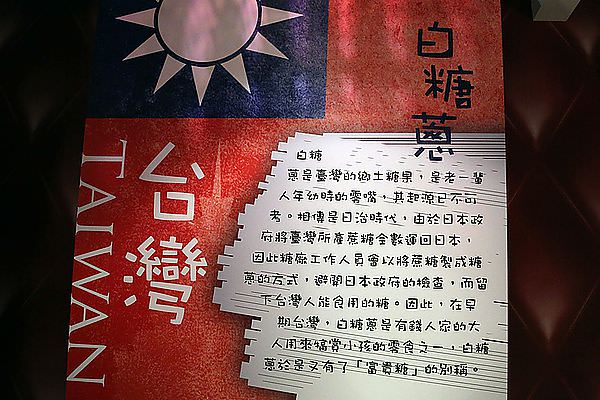 白糖蔥
台灣
TAIWAN
白糖
蔥是臺灣的鄉土糖果，是老一輩
人年幼時的零嘴，其起源已不可
考。相傳是日治時代，由於日本政
府將臺灣所產蔗糖全數運回日本，
因此糖廠工作人員會以將蔗糖製成糖
蔥的方式，避開日本政府的檢查，而留
下台灣人能食用的糖。因此，在早
期台灣，白糖蔥是有錢人家的大
人用來犒賞小孩的零食之一，白糖
蔥於是又有了「富貴糖」的別稱。